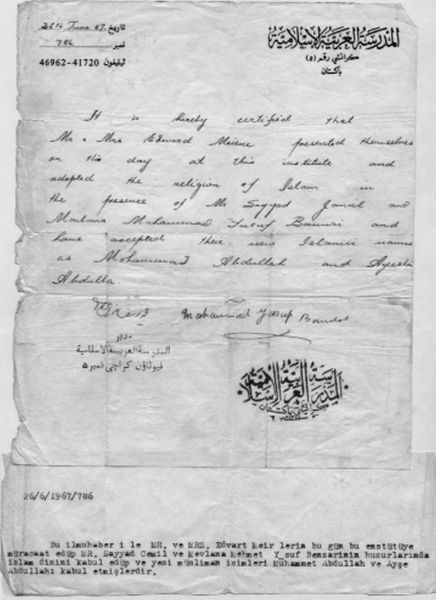 تاريخ 26th June 67.
نمبر 786
ٹیلیفون 41720-46962
المدرسة العربية الاسلامية
كراتشي رقم (٥)
باكستان
It is hereby certified that
Mr & Mrs Edward Meiene presented themselves
on this day at this institute and
adopted the religion of Islam in
the presence of Mr Sayyad Jamil and
Maulana Mohammad Yusuf Bannuri and
have accepted their new Islamic names
as Mohammad Abdullah and Ayesha
Abdulla.
Mohammad Yusuf
مدیر
المدرسة العربية الاسلامية
نیوٹاؤن کراچی نمبر ٥
المدرسة العربية الإسلامية
26/6/1967/786
Bu ilmuhaber i le MR. ve MRS. Edvart Meir lerin bu gün bu enstütüye
müracaat edüp MR. Sayyad Cemil ve Mevlana Mehmet Y suf Benzarinin huzurlarında
islam dinimi kabul edüp ve yeni müsliman isimleri Mühammet Abdullah ve Ayşe
Abdullahı kabul etmişlerdir.